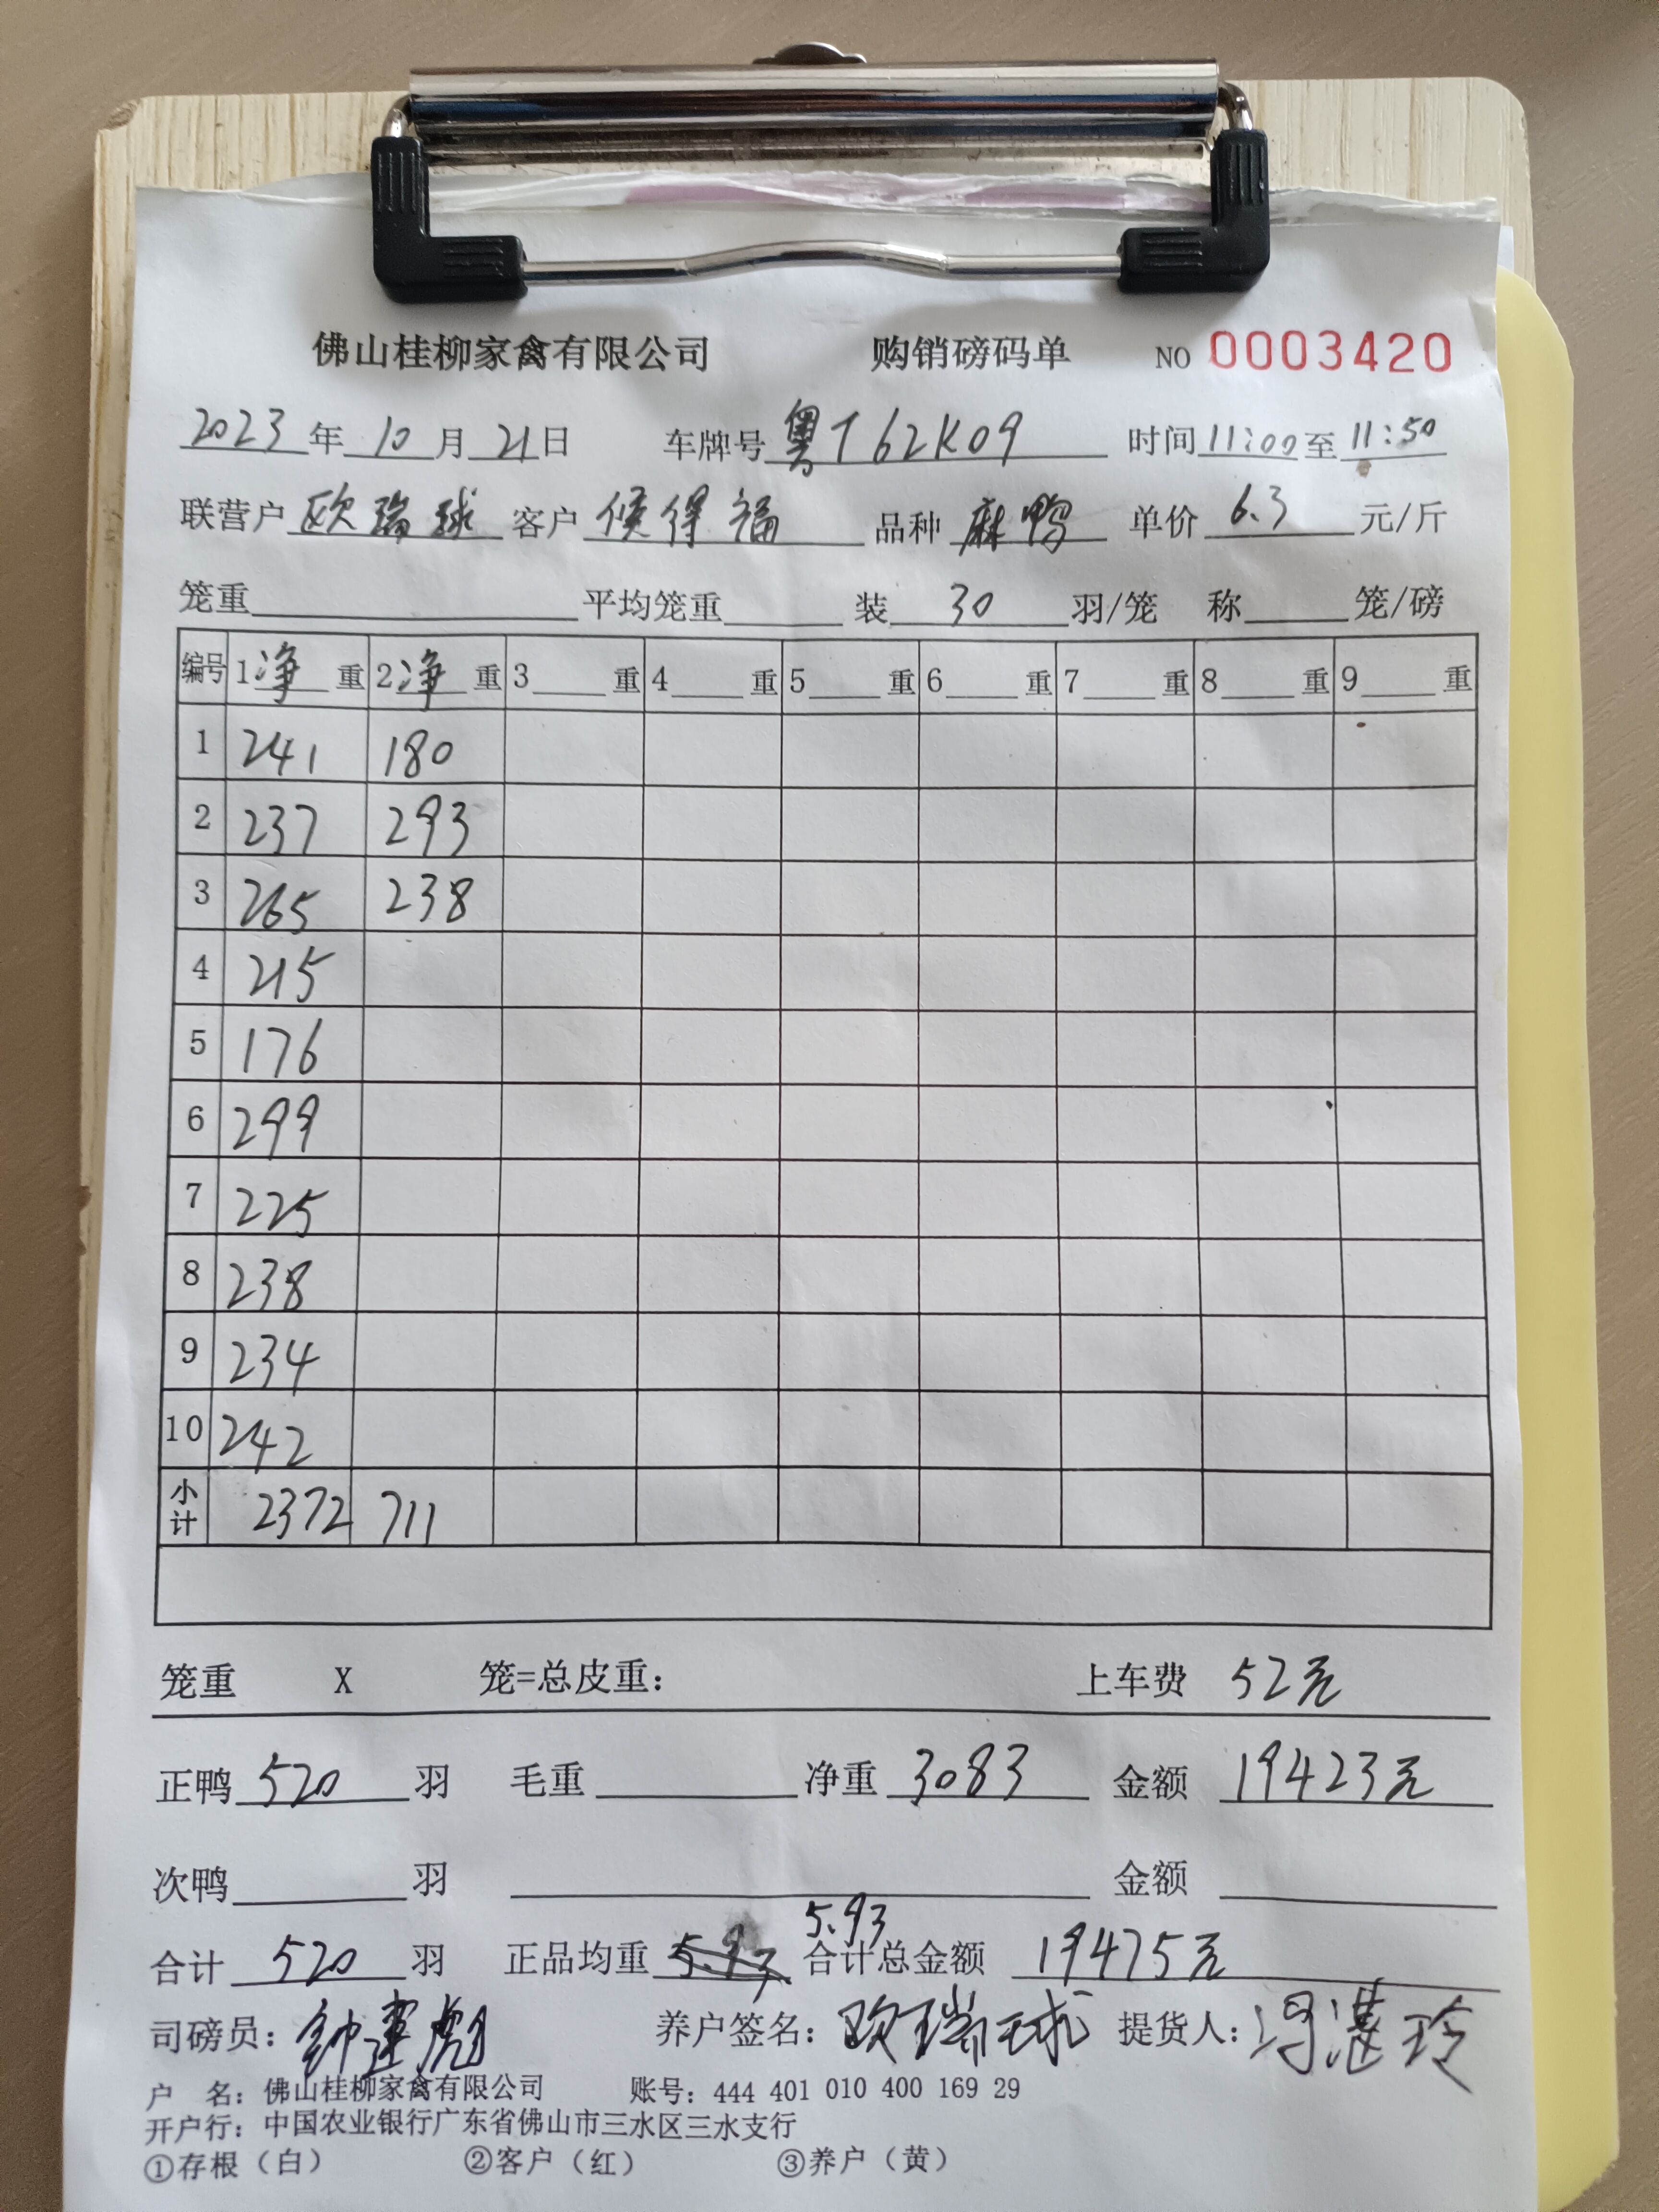 佛山桂柳家禽有限公司 购销磅码单 NO 0003420
2023年10月21日 车牌号粤T62K09 时间11:00至11:50
联营户 欧瑞球 客户 候得福 品种 麻鸭 单价 6.3 元/斤
笼重 平均笼重 装 30 羽/笼 称 笼/磅
编号 1净重 2净重 3 重 4 重 5 重 6 重 7 重 8 重 9 重
1 241 180
2 237 293
3 265 238
4 215
5 176
6 299
7 225
8 238
9 234
10 242
小计 2372 711
笼重 X 笼=总皮重： 上车费 52元
正鸭 520 羽 毛重 净重 3083 金额 19423元
次鸭 羽 金额
5.93
合计 520 羽 正品均重 合计总金额 19475元
司磅员：钟建彪 养户签名：欧瑞球 提货人：冯湛玲
户 名：佛山桂柳家禽有限公司 账号：444 401 010 400 169 29
开户行：中国农业银行广东省佛山市三水区三水支行
①存根（白） ②客户（红） ③养户（黄）